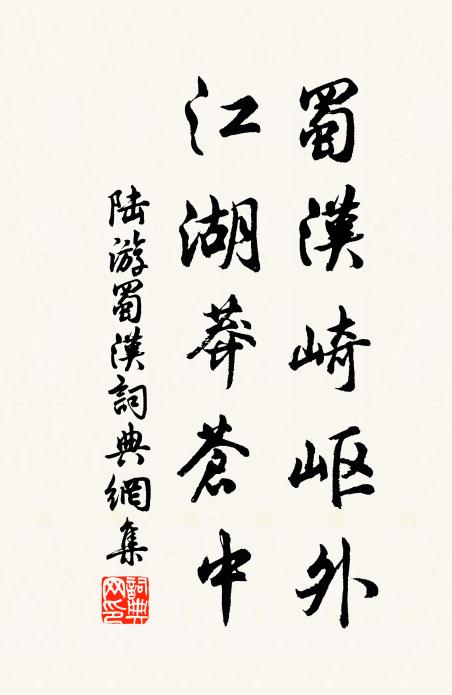 蜀漢崎岖外
江湖莽蒼中
陆游蜀漢詞典網集
詞典网印